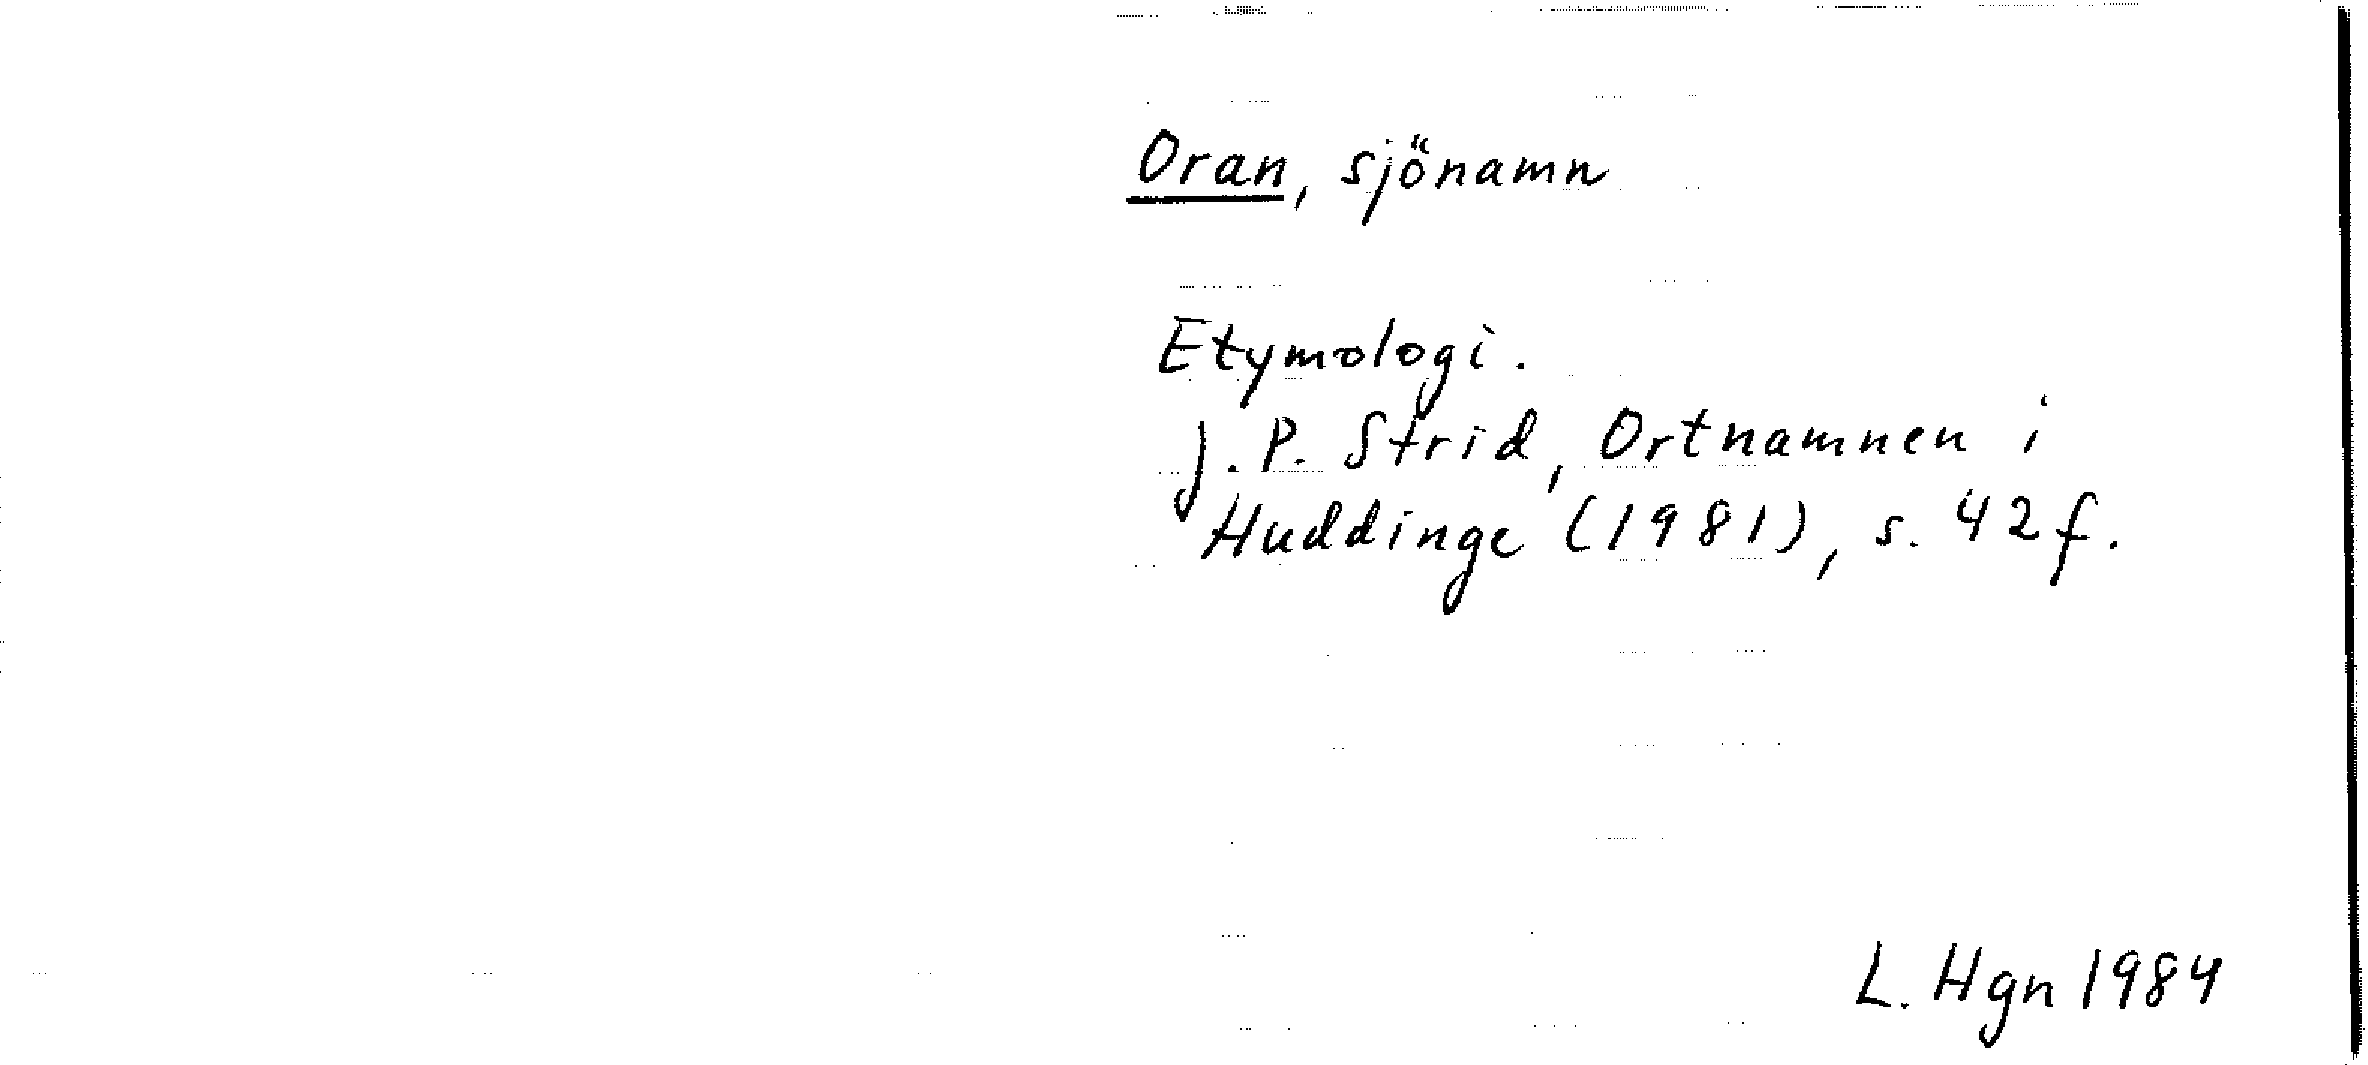 Oran, sjönamn
Etymologi.
J. P. Strid, Ortnamnen i
Huddinge (1981), s. 42 f.
L. Hgn 1984